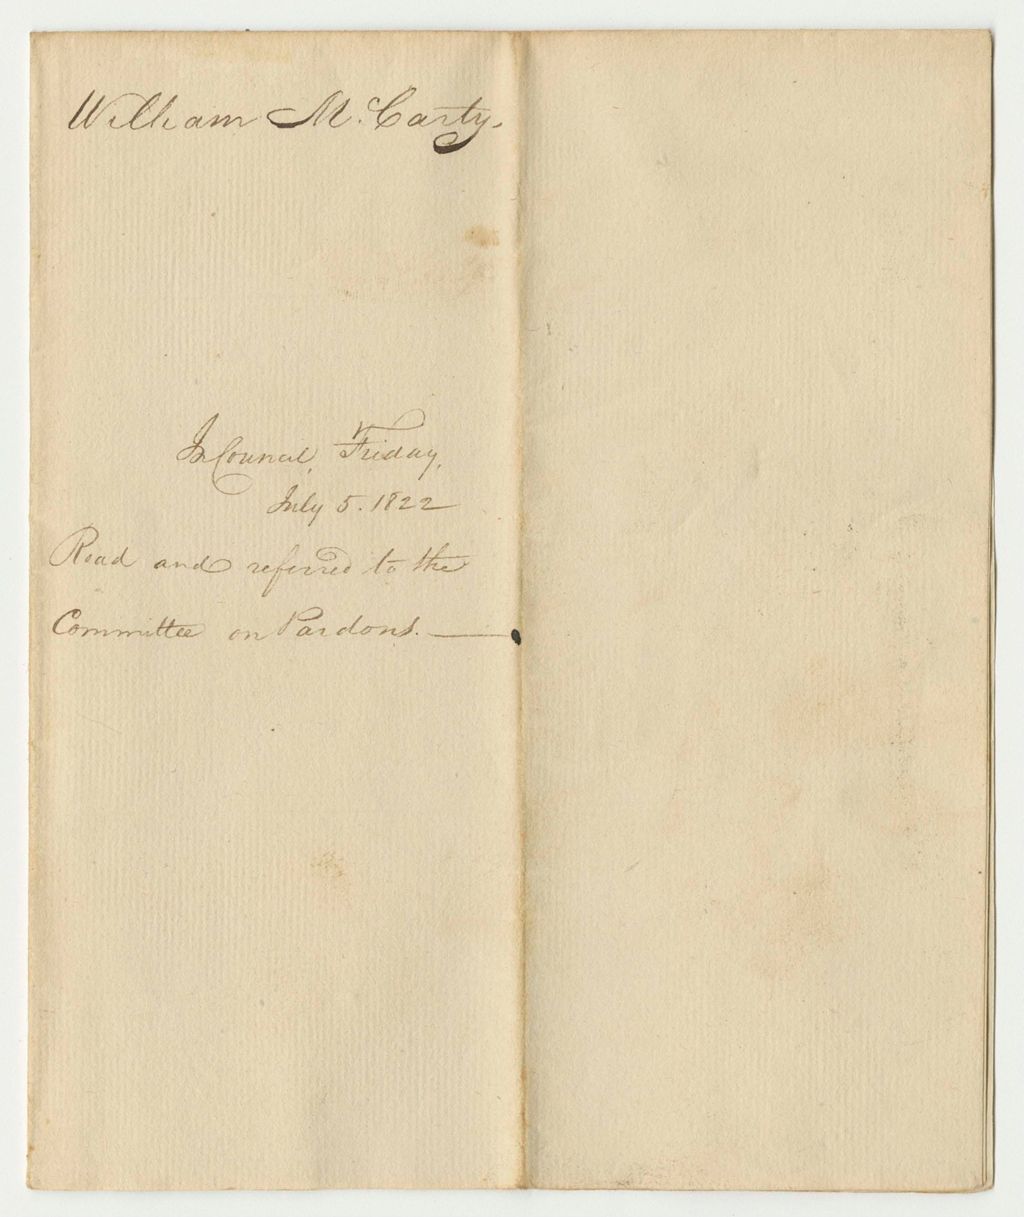 William McCarty.
In Council, Friday,
July 5. 1822
Read and referred to the
Committee on Pardons.